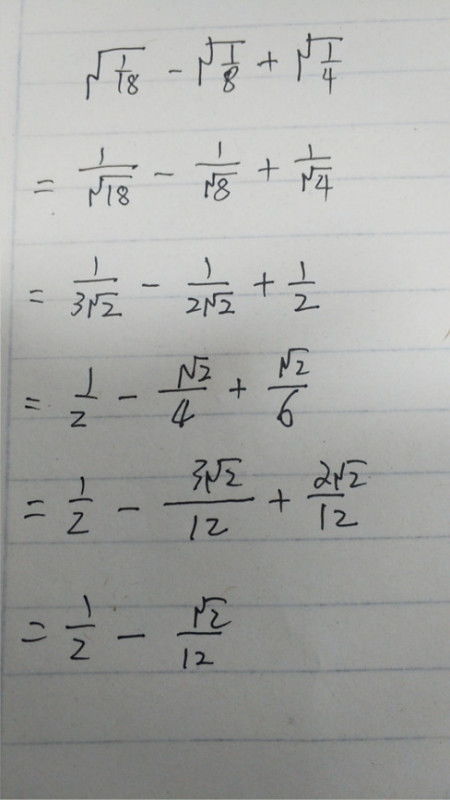 √(1/18) − √(1/8) + √(1/4)
= 1/√18 − 1/√8 + 1/√4
= 1/(3√2) − 1/(2√2) + 1/2
= 1/2 − √2/4 + √2/6
= 1/2 − 3√2/12 + 2√2/12
= 1/2 − √2/12